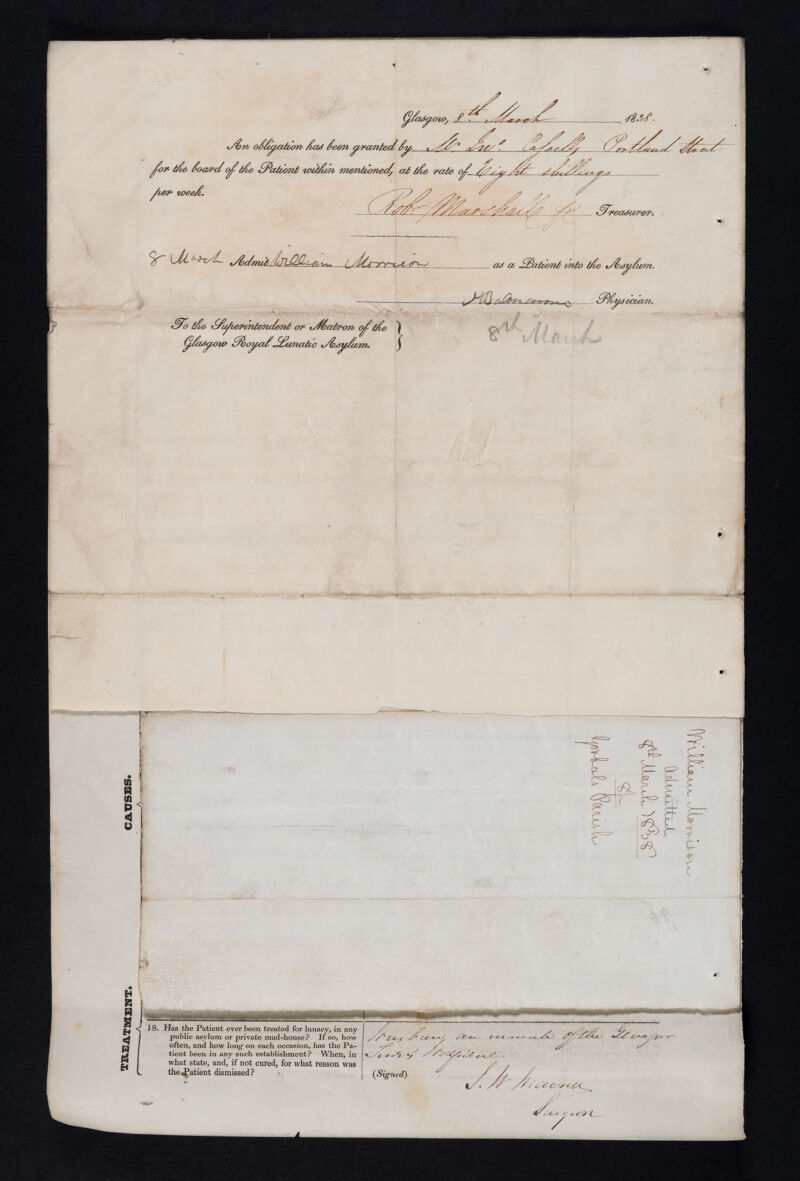 Glasgow, 8th March 1838.
An obligation has been granted by Mr Jno. Portland Street
for the board of the Patient within mentioned, at the rate of Eight shillings
per week.
Rob. Marshall Treasurer.
8 March Admit William Morrison as a Patient into the Asylum.
Balmanno Physician.
To the Superintendent or Matron of the
Glasgow Royal Lunatic Asylum.
8th March
William Morrison
Admitted
8th March 1838
8/
Gorbals Parish
CAUSES.
TREATMENT.
18. Has the Patient ever been treated for lunacy, in any
public asylum or private mad-house? If so, how
often, and how long on each occasion, has the Pa-
tient been in any such establishment? When, in
what state, and, if not cured, for what reason was
the Patient dismissed?
an inmate of the Glasgow
Hospital.
(Signed)
J. W.
Surgeon